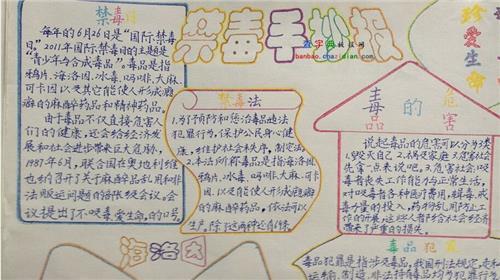 禁毒日
每年的6月26日是"国际禁毒
日"。2011年国际禁毒日的主题是
"青少年与合成毒品"。毒品是指
鸦片、海洛因、冰毒、吗啡、大麻、
可卡因以及其它能使人形成瘾
癖的麻醉药品和精神药品。
由于毒品不仅直接危害人
们的健康,还会给经济发
展和社会进步带来巨大威胁,
1987年6月,联合国在奥地利维
也纳召开了关于麻醉品乱用和非
法贩运问题的部长级会议。会
议提出了"不吸毒,爱生命"的口号
禁毒手抄报
查字典 教技网
banbao.chazidian.com
珍爱生命
禁毒法
1.为了预防和惩治毒品违法
犯罪行为,保护公民身心健
康,维护社会秩序,制定法。
2.本法所称毒品是指海洛因、
鸦片、冰毒、吗啡、大麻、可卡
因,以及能使人形成瘾癖
的麻醉药品,依法可以
生产,除了这两种还有6条。
毒品的危害
说起毒品的危害可以分为
1.毁灭自己 2.祸及家庭 3.危害社会
先害一点来说吧,3.危害社会:吸
毒者丧失工作能力与正常生活,
对吸毒者各种医疗费用,缉毒、戒
毒力量的投入,药物防乱用防止工
作的开展,这些人都给社会经济
带来了严重的损失。
海洛因
毒品犯罪
毒品犯罪是指涉及毒品,我国刑法规定,走私
运输、制造、非法持有毒品